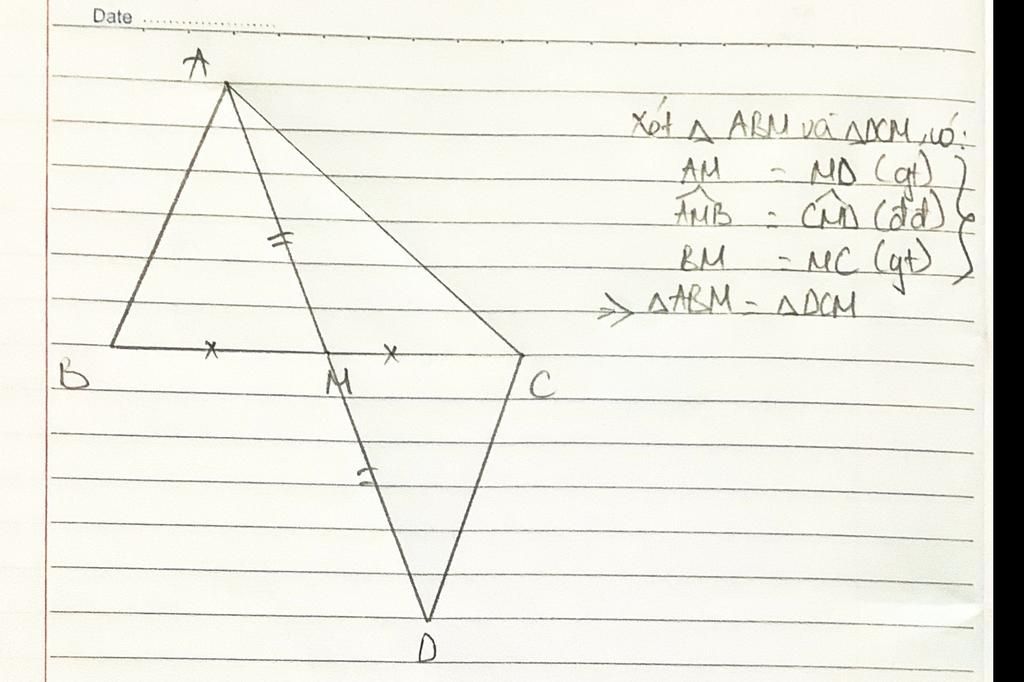 Date
A
Xét Δ ABM và ΔDCM, có:
AM = MD (gt)
AMB = CMD (đđ)
BM = MC (gt)
=> ΔABM = ΔDCM
B
M
C
D